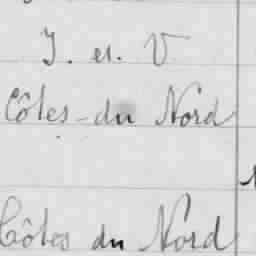 I. et. V
Côtes-du Nord
Côtes du Nord